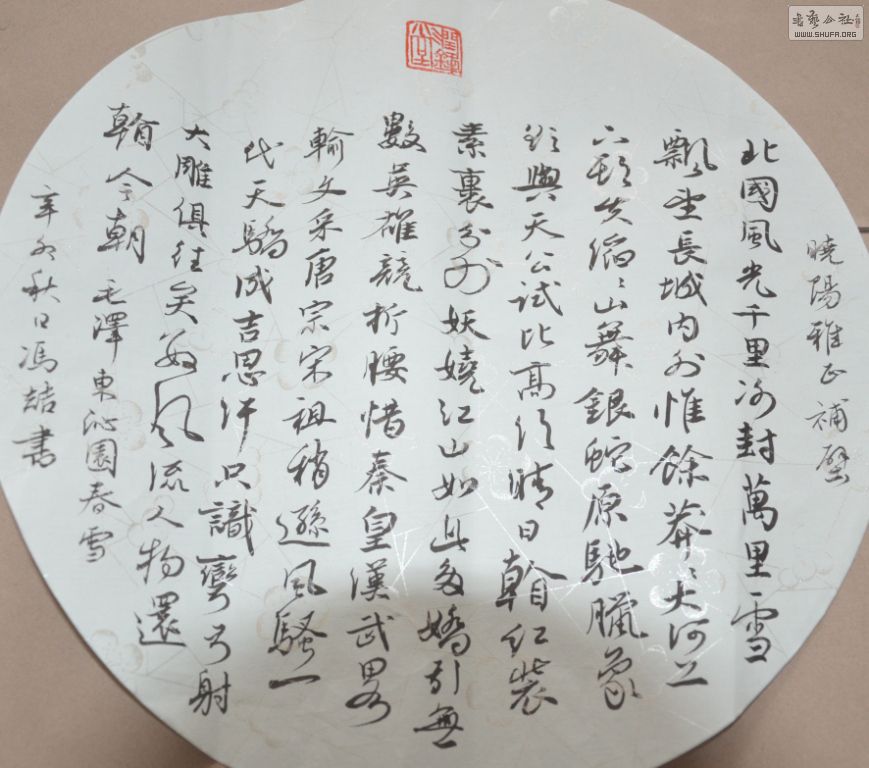 曉陽雅正補壁
北國風光千里冰封萬里雪
飄望長城内外惟餘莽々大河上
下頓失滔々山舞銀蛇原馳臘象
欲與天公試比高須晴日看紅裝
素裹分外妖嬈江山如此多嬌引無
數英雄競折腰惜秦皇漢武略
輸文采唐宗宋祖稍遜風騷一
代天驕成吉思汗只識彎弓射
大雕俱往矣數風流人物還
看今朝 毛澤東沁園春雪
辛卯秋日馮喆書
書藝公社
WWW.SHUFA.ORG